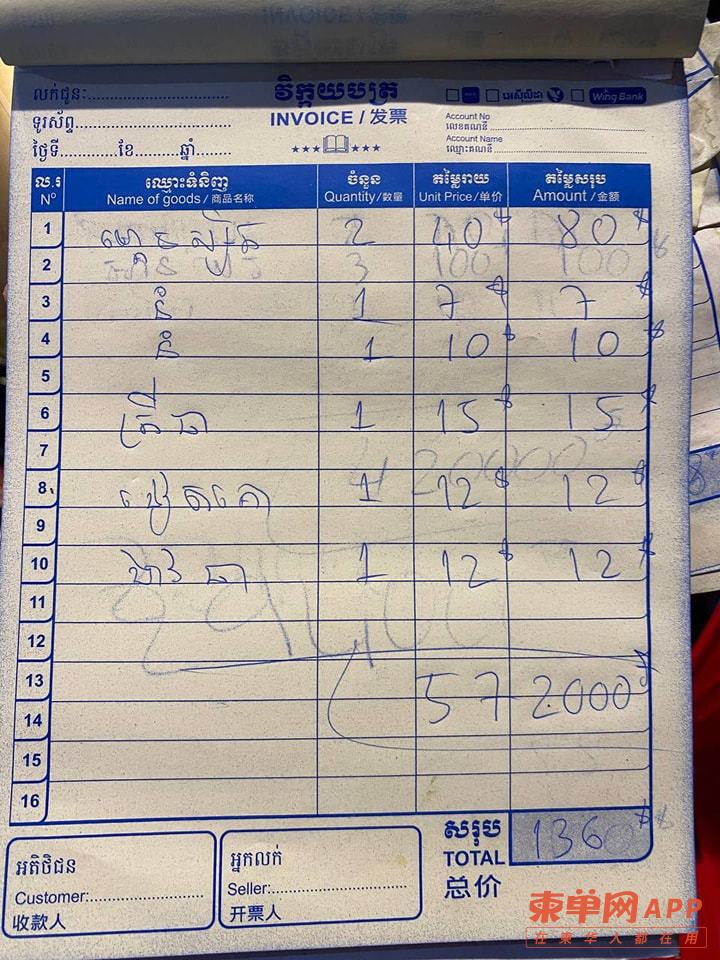 លក់ជូនៈ
វិក្កយបត្រ
អេស៊ីលីដា
Wing Bank
ទូរស័ព្ទ
INVOICE / 发票
Account No
លេខគណនី
ថ្ងៃទី ខែ ឆ្នាំ
Account Name
ឈ្មោះគណនី
ល.រ ឈ្មោះទំនិញ ចំនួន តម្លៃរាយ តម្លៃសរុប
Nº Name of goods / 商品名称 Quantity/数量 Unit Price/单价 Amount /金额
1 មាន់ស្រែ 2 40$ 80$
2 3 100 100
3 នំ 1 7$ 7$
4 នំ 1 10$ 10$
5
6 ត្រី 1 15$ 15$
7 20000
8 1 12$ 12$
9
10 1 12$ 12$
11
12
13 572000
14
15
16
សរុប 136$
TOTAL
总价
អតិថិជន
Customer:
收款人
អ្នកលក់
Seller:
开票人
柬单网APP
在柬华人都在用